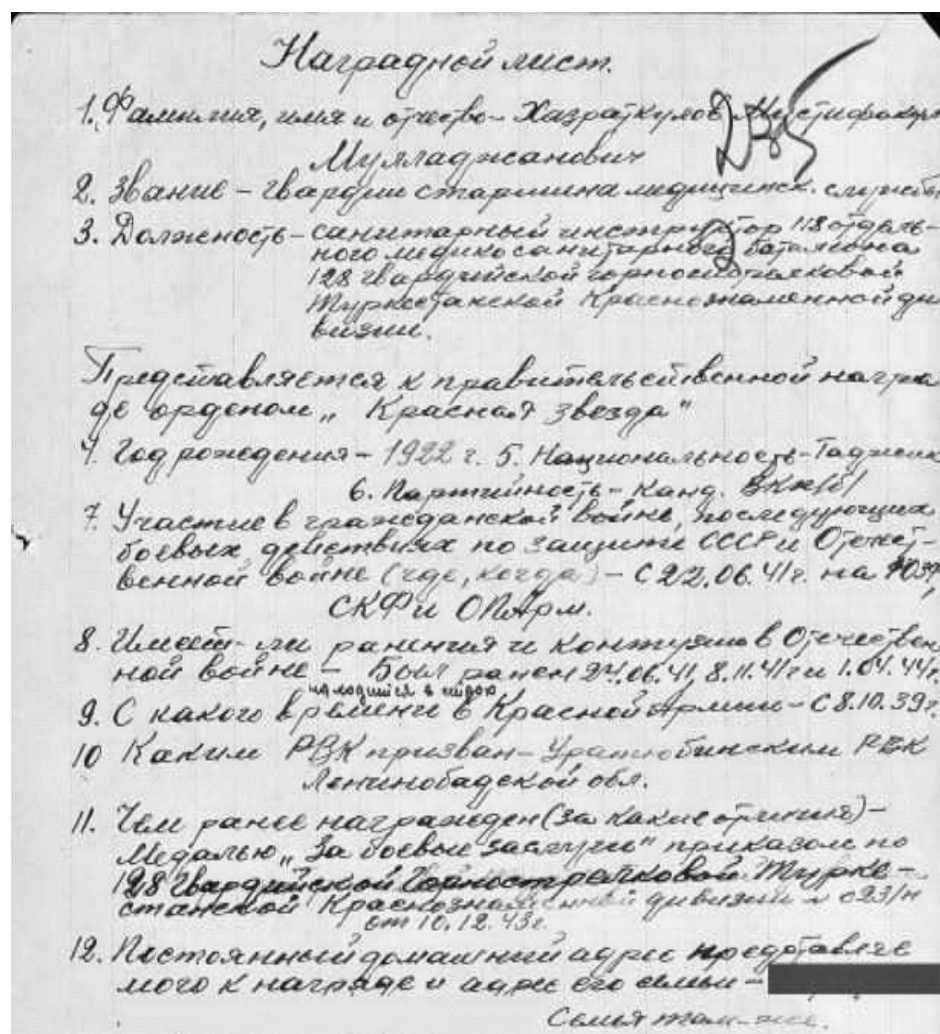 Наградной лист.
1. Фамилия, имя и отчество – Хазраткулов
Мулладжанович
2. Звание – гвардии старшина медицинск. службы
3. Должность – санитарный инструктор 118 отдель-
ного медикосанитарного баталиона
128 гвардийской горнострелковой
Туркестанской Краснознаменной ди
визии.
Представляется к правительственной награ
де орденом „Красная Звезда"
4. Год рождения – 1922 г. 5. Национальность – Таджик
6. Партийность – Канд. ВКП/б/
7. Участие в гражданской войне, последующих
боевых действиях по защите СССР и Отечест-
венной войне (где, когда) – С 22.06.41г. на ЮЗФ,
СКФ и ОПАрм.
8. Имеет-ли ранения и контузии в Отечествен
ной войне – Был ранен 24.06.41, 8.11.41г и 1.04.44г.
находится в строю
9. С какого времени в Красной армии – С 8.10.39г.
10 Каким РВК призван – Уратюбинским РВК
Ленинобадской обл.
11. Чем ранее награжден (за какие отличия) –
Медалью „За боевые заслуги" приказом по
128 Гвардийской Горнострелковой Турке-
станской Краснознаменной дивизии № 023/н
от 10.12.43г.
12. Постоянный домашний адрес представляе
мого к награде и адрес его семьи –
Семья там-же.